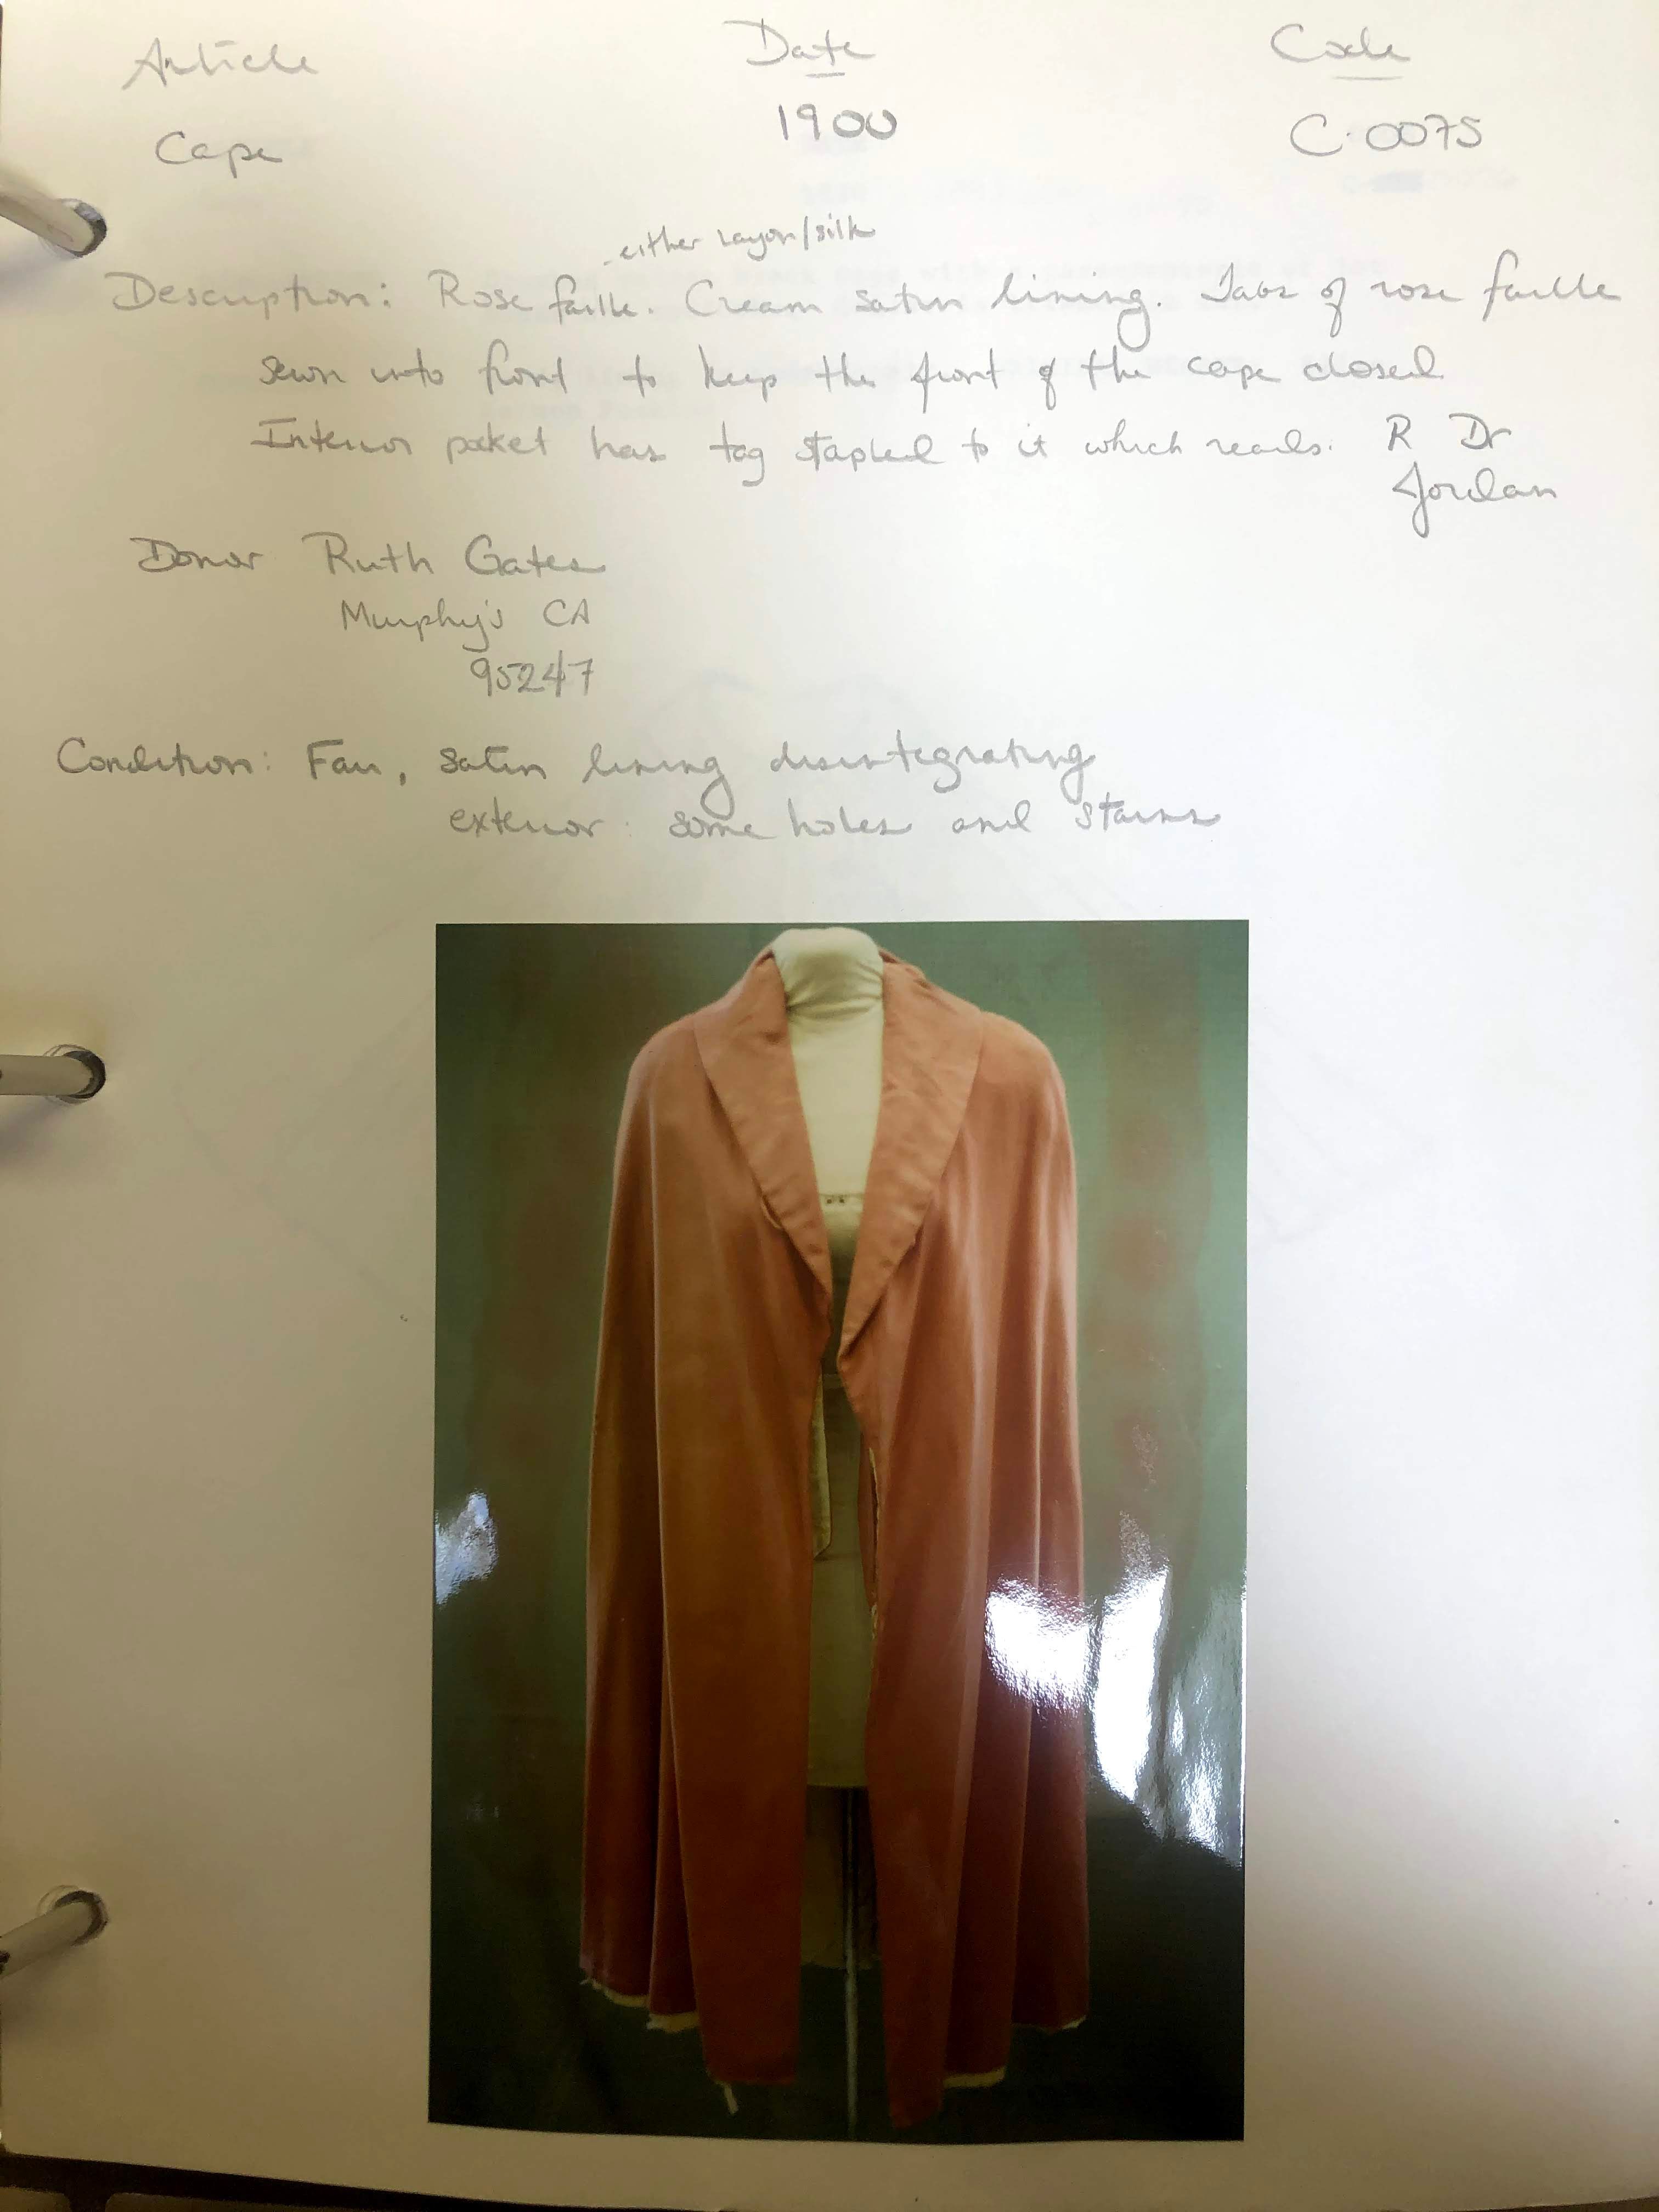 Article Date Code
Cape 1900 C.0075
either rayon/silk
Description: Rose faille. Cream satin lining. Tabs of rose faille
sewn into front to keep the front of the cape closed
Interior pocket has tag stapled to it which reads: R Dr
Jordan
Donor Ruth Gates
Murphy's CA
95247
Condition: Fair, satin lining disintegrating
exterior: some holes and stains